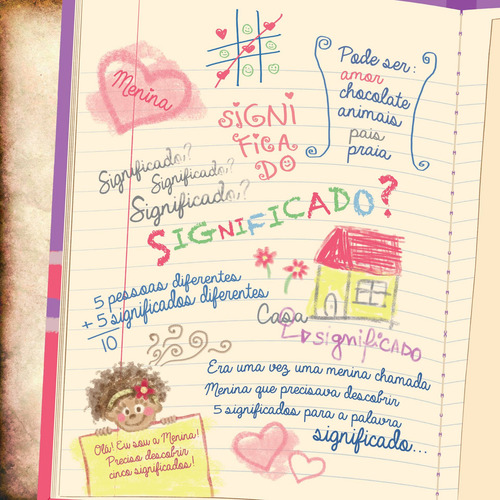 Menina
SIGNI
FICA
DO
Pode ser:
amor
chocolate
animais
pais
praia
Significado?
Significado?
Significado?
SIGNIFICADO?
5 pessoas diferentes
+ 5 significados diferentes
10
Casa
significado
Era uma vez uma menina chamada
Menina que precisava descobrir
5 significados para a palavra
significado...
Olá! Eu sou a Menina!
Preciso descobrir
cinco significados!